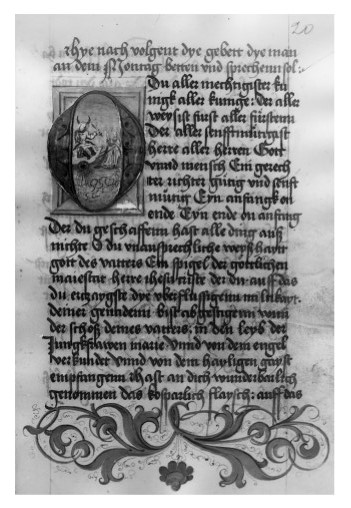 20
Hye nach volgent dye gebett dye man
an dem Montag betten vnd sprechenn sol:
Du aller mechtigister kü
nigk aller kunige: der aller
weysist fürst aller fürstenn
Der aller senfftmütigast
herre aller herren Gott
vnnd mensch Ein gerech
ter richter gütig vnd senft
mütig Eyn anfangk on
ende Eyn ende on anfang
Der du geschaffenn hast alle ding auß
nichte O du vnaussprechliche weyßhayt
gott des vatters Ein spigel der göttlichen
maiestat herre ihesu criste der du auff das
du ertzaygst dye vberflüssigenn miltikayt
deiner gend bist abgestigenn vonn
der schoß deines vatters: in den leyb der
Jungkfrawen marie: vnnd von dem engel
verkündet vnnd von dem hayligen gayst
empfangenn: hast an dich wunderbarlich
genommen das kosparlich flaysch: auff das